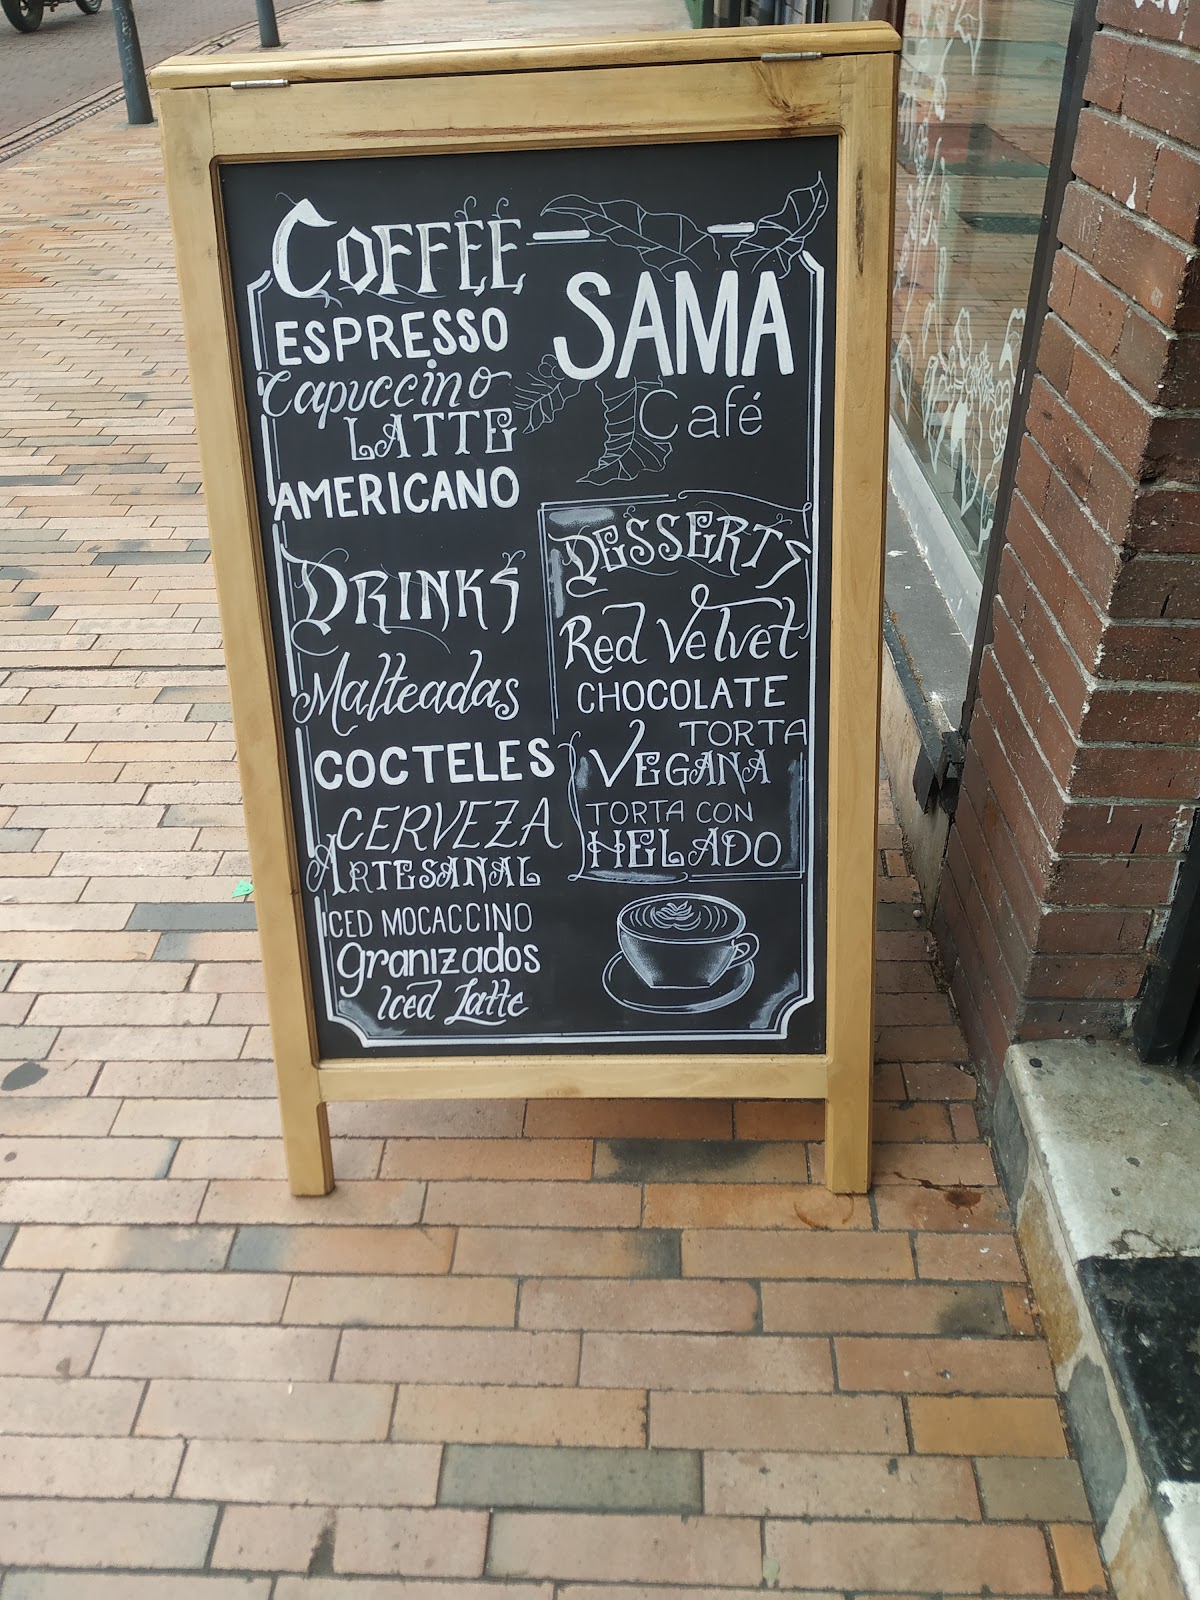 COFFEE
ESPRESSO
Capuccino
LATTE
AMERICANO
DRINKS
Malteadas
COCTELES
CERVEZA
ARTESANAL
ICED MOCACCINO
Granizados
Iced Latte
SAMA
Café
DESSERTS
Red Velvet
CHOCOLATE
TORTA
VEGANA
TORTA CON
HELADO